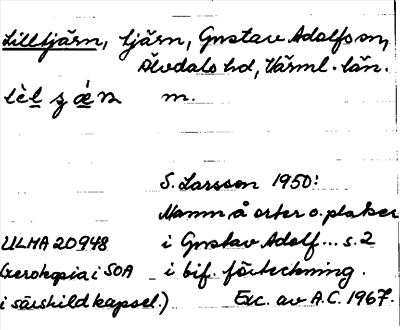 Lilltjärn, tjärn, Gustav Adolfs sn,
Älvdals hd, Värml. län.
m.
S. Larsson 1950:
Namn å orter o. platser
ULMA 20948 i Gustav Adolf... s. 2
(xerokopia i SOA i bif. förteckning.
i särskild kapsel.) Exc. av A.C. 1967.